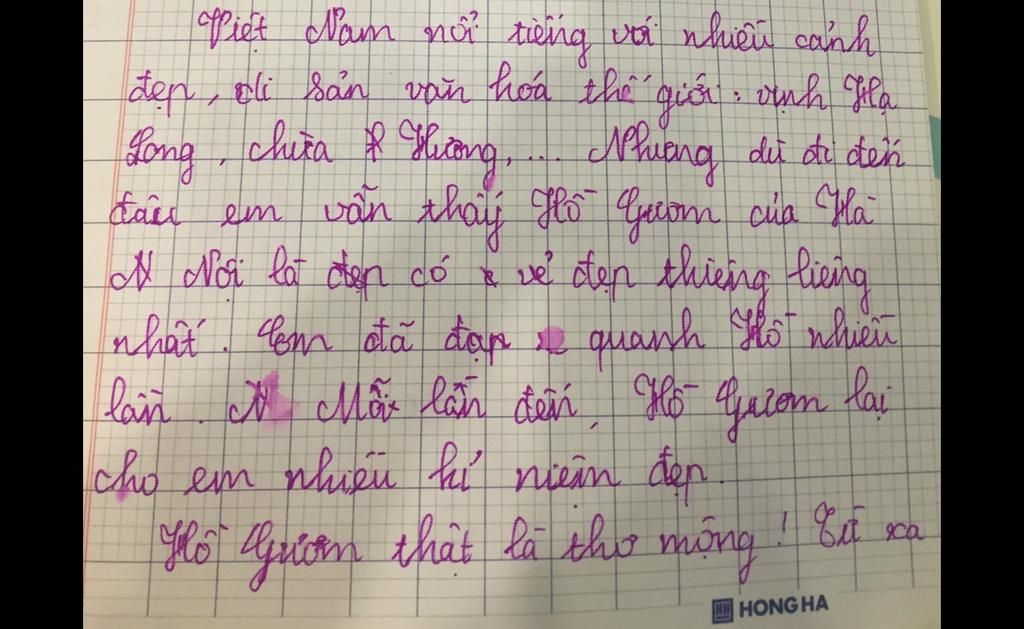 Việt Nam nổi tiếng với nhiều cảnh
đẹp, di sản văn hoá thế giới: vịnh Hạ
Long, chùa Hương,... Nhưng dù đi đến
đâu em vẫn thấy Hồ Gươm của Hà
Nội là đẹp có vẻ đẹp thiêng liêng
nhất. Em đã đạp quanh Hồ nhiều
lần. Mỗi lần đến, Hồ Gươm lại
cho em nhiều kỉ niệm đẹp.
Hồ Gươm thật là thơ mộng! Từ xa
HONG HA